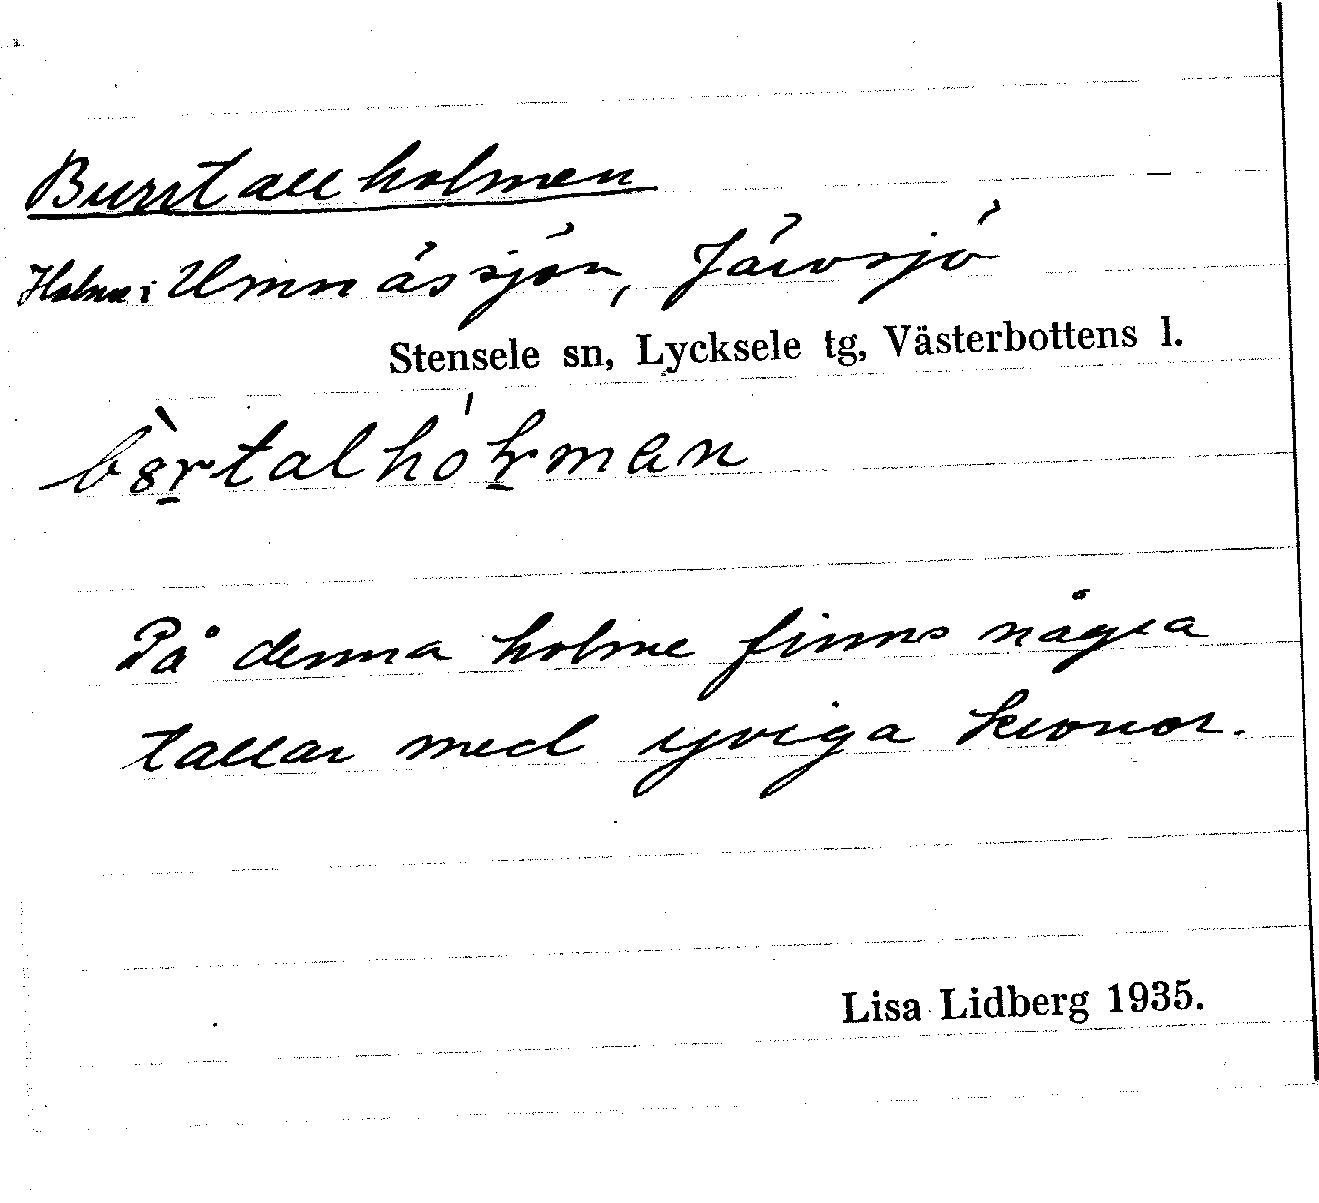 Burrtallholmen
Holme i Umnässjön, Järvsjö
Stensele sn, Lycksele tg, Västerbottens l.
På denna holme finns några
tallar med yviga kronor.
Lisa Lidberg 1935.